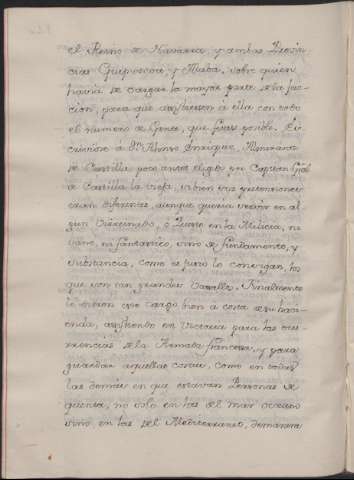 el Reyno de Navarra, y ambas Provin
cias Guipuscoa, y Alaba, sobre quien
havia de cargar la mayor parte de la fac
cion, para que asistiesen á ella con todo
el numero de Gente, que fuese posible. Es
cribióse á Dn. Alonso Enriquez, Almirante
de Castilla poco antes eligido por Capitan Gral
de Castilla la vieja, si bien sus pretensiones
eran diferentes, aunque queria en al
gun ó Puesto en la Milicia, no
vano, ni fantastico, sino de fundamento, y
substancia, como es justo lo consigan, los
que son tan grandes Vasallos. Finalmente
le dieron ese cargo bien a costa de su haci
enda, asistiendo en Victoria para las ocu
rrencias de la Armada francesa, y para
guardar aquellas costas, como en todas
las demás en que estavan Personas de
quenta, no solo en las del mar occeano
sino, en las del Mediterraneo, demanera